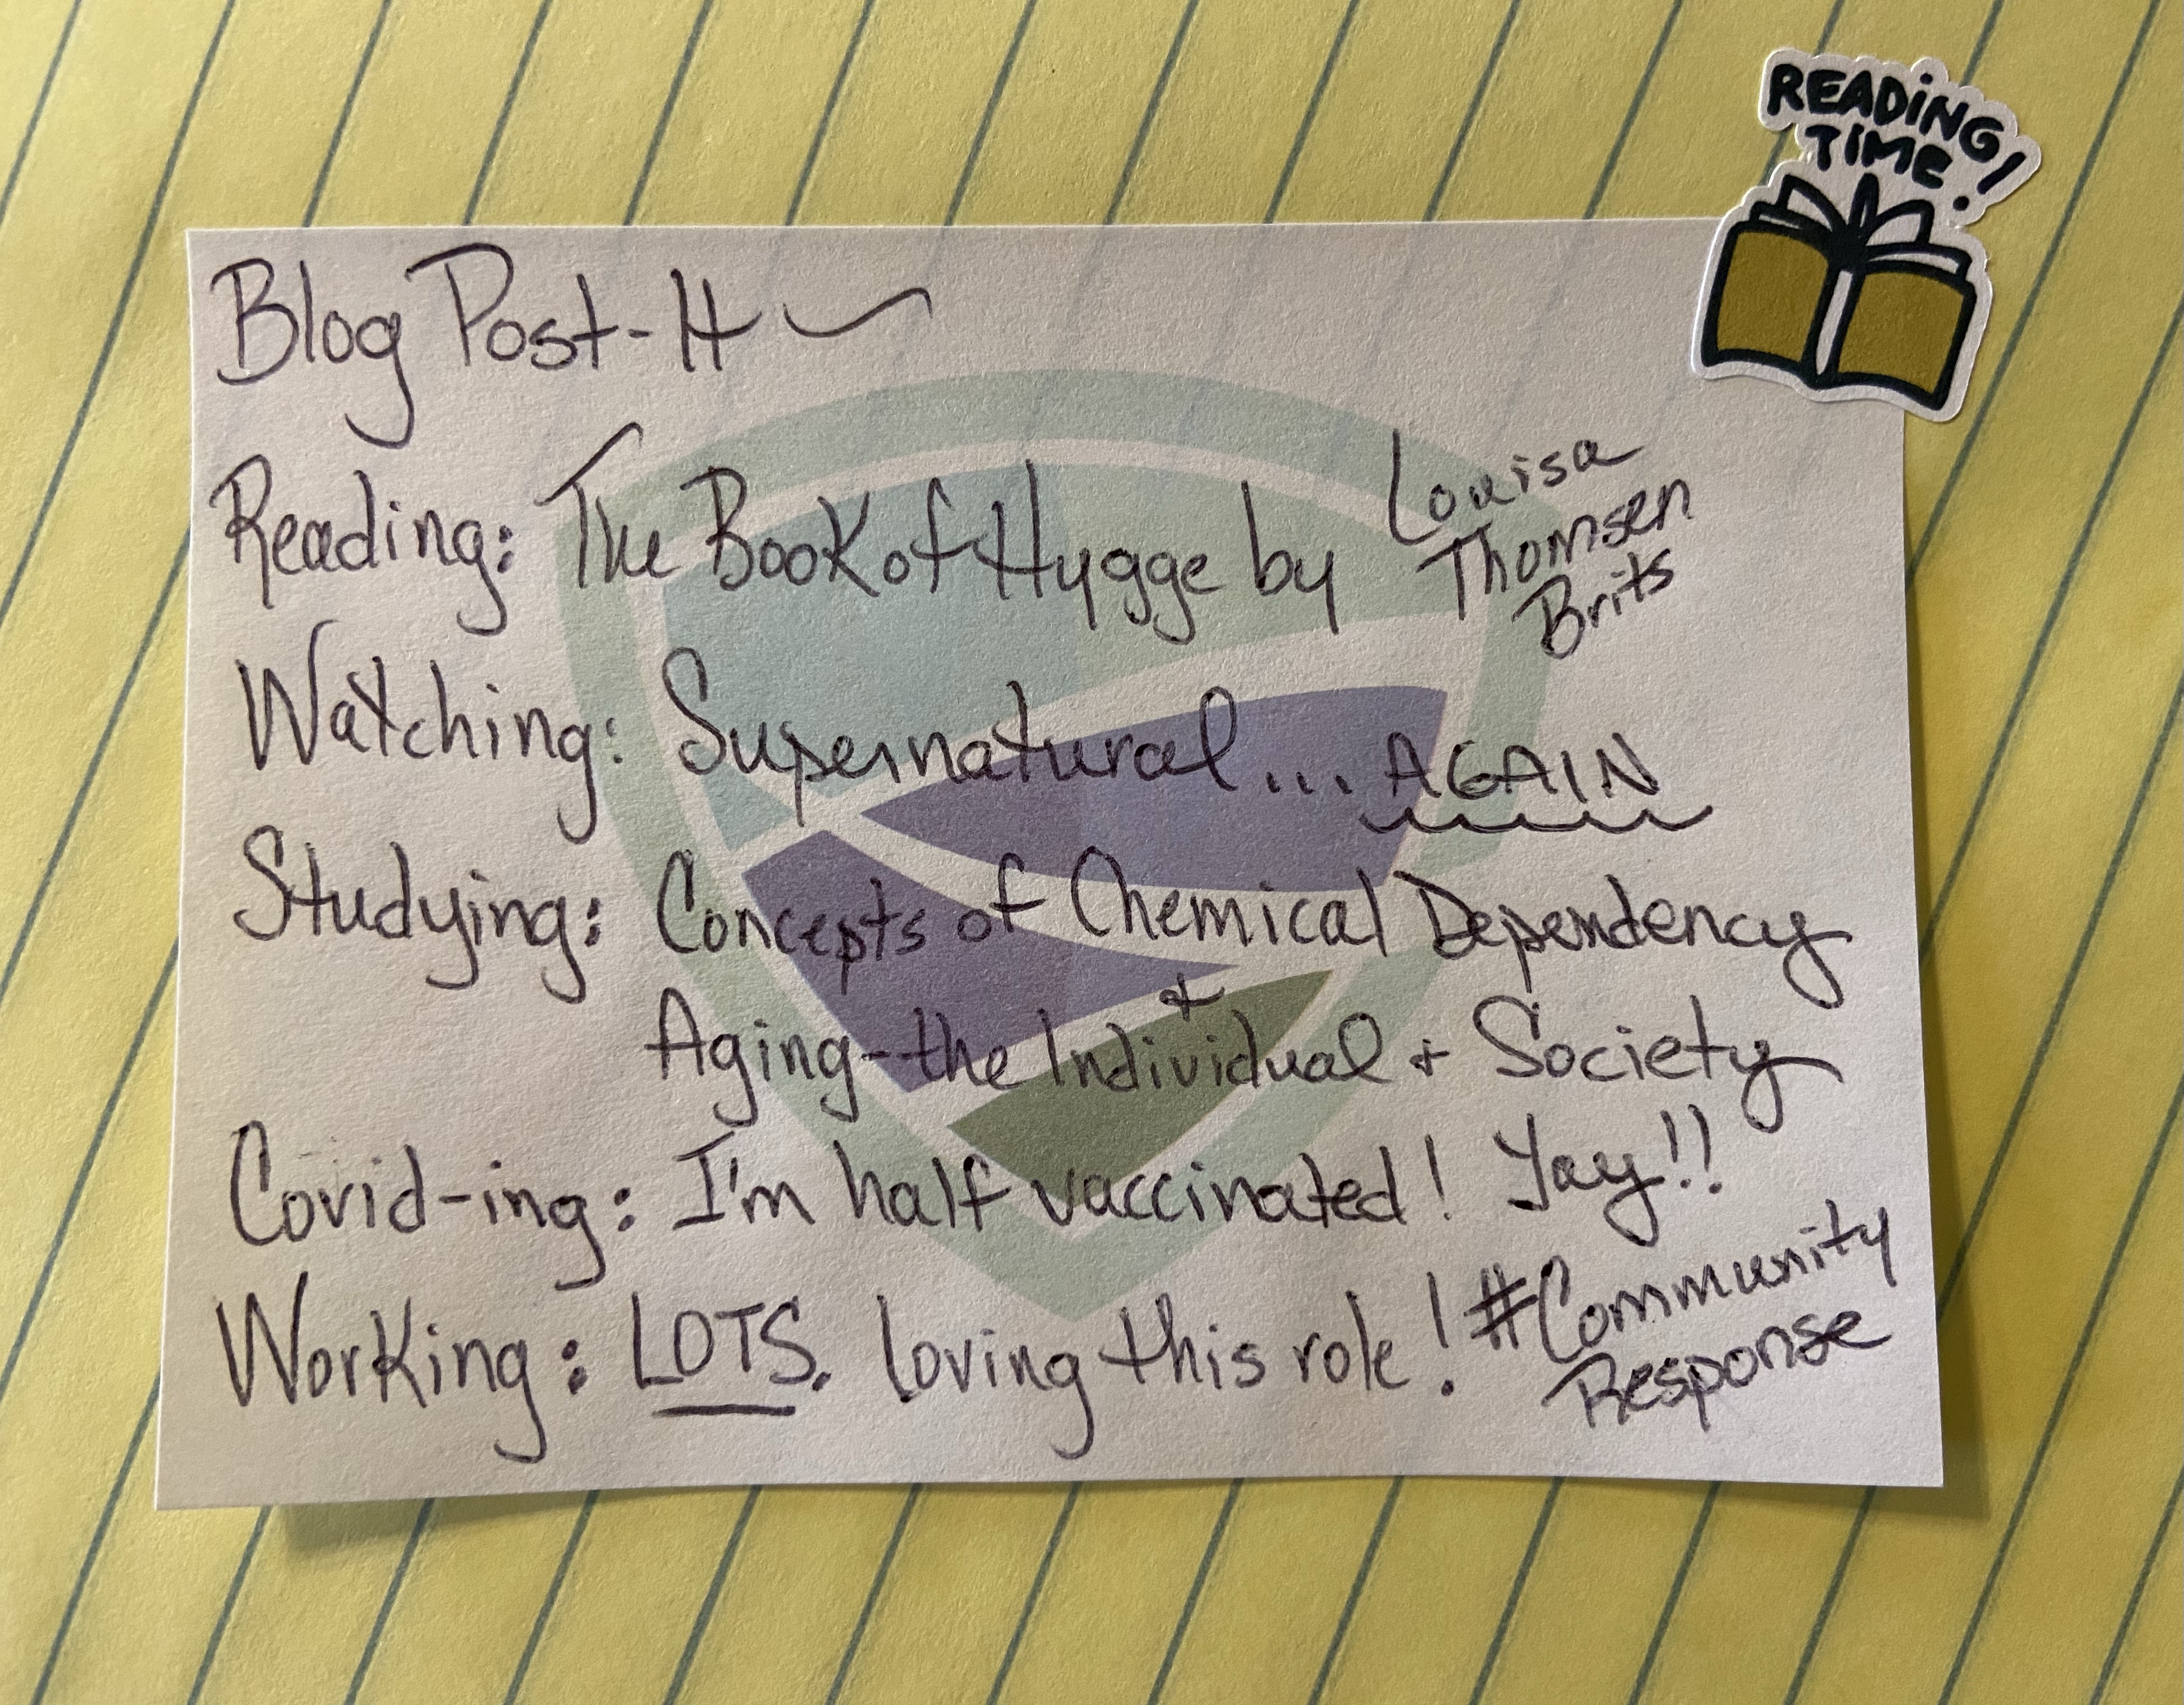 READING
TIME!
Blog Post-It
Reading: The Book of Hygge by Louisa
Thomsen
Brits
Watching: Supernatural... AGAIN
Studying: Concepts of Chemical Dependency
+
Aging-the Individual + Society
Covid-ing: I'm half vaccinated! Yay!!
Working: LOTS. loving this role! #Community
Response